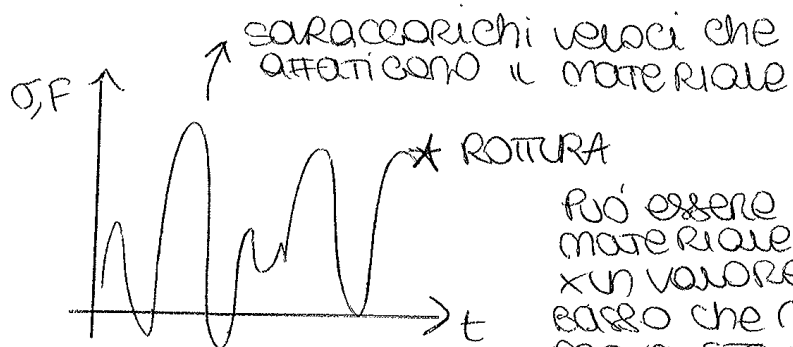 SARACCARICHI VELOCI CHE
AFFATICANO IL MATERIALE
σ,F
ROTTURA
PUÓ ESSERE
MATERIALE
X UN VALORE
BASSO CHE
t